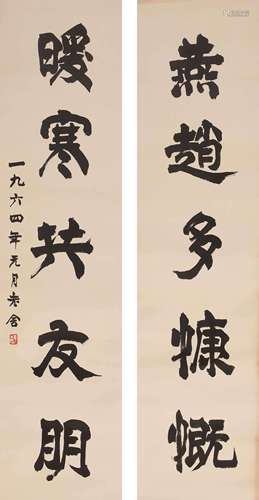 燕趙多慷慨
暖寒共友朋
一九六四年元月老舍